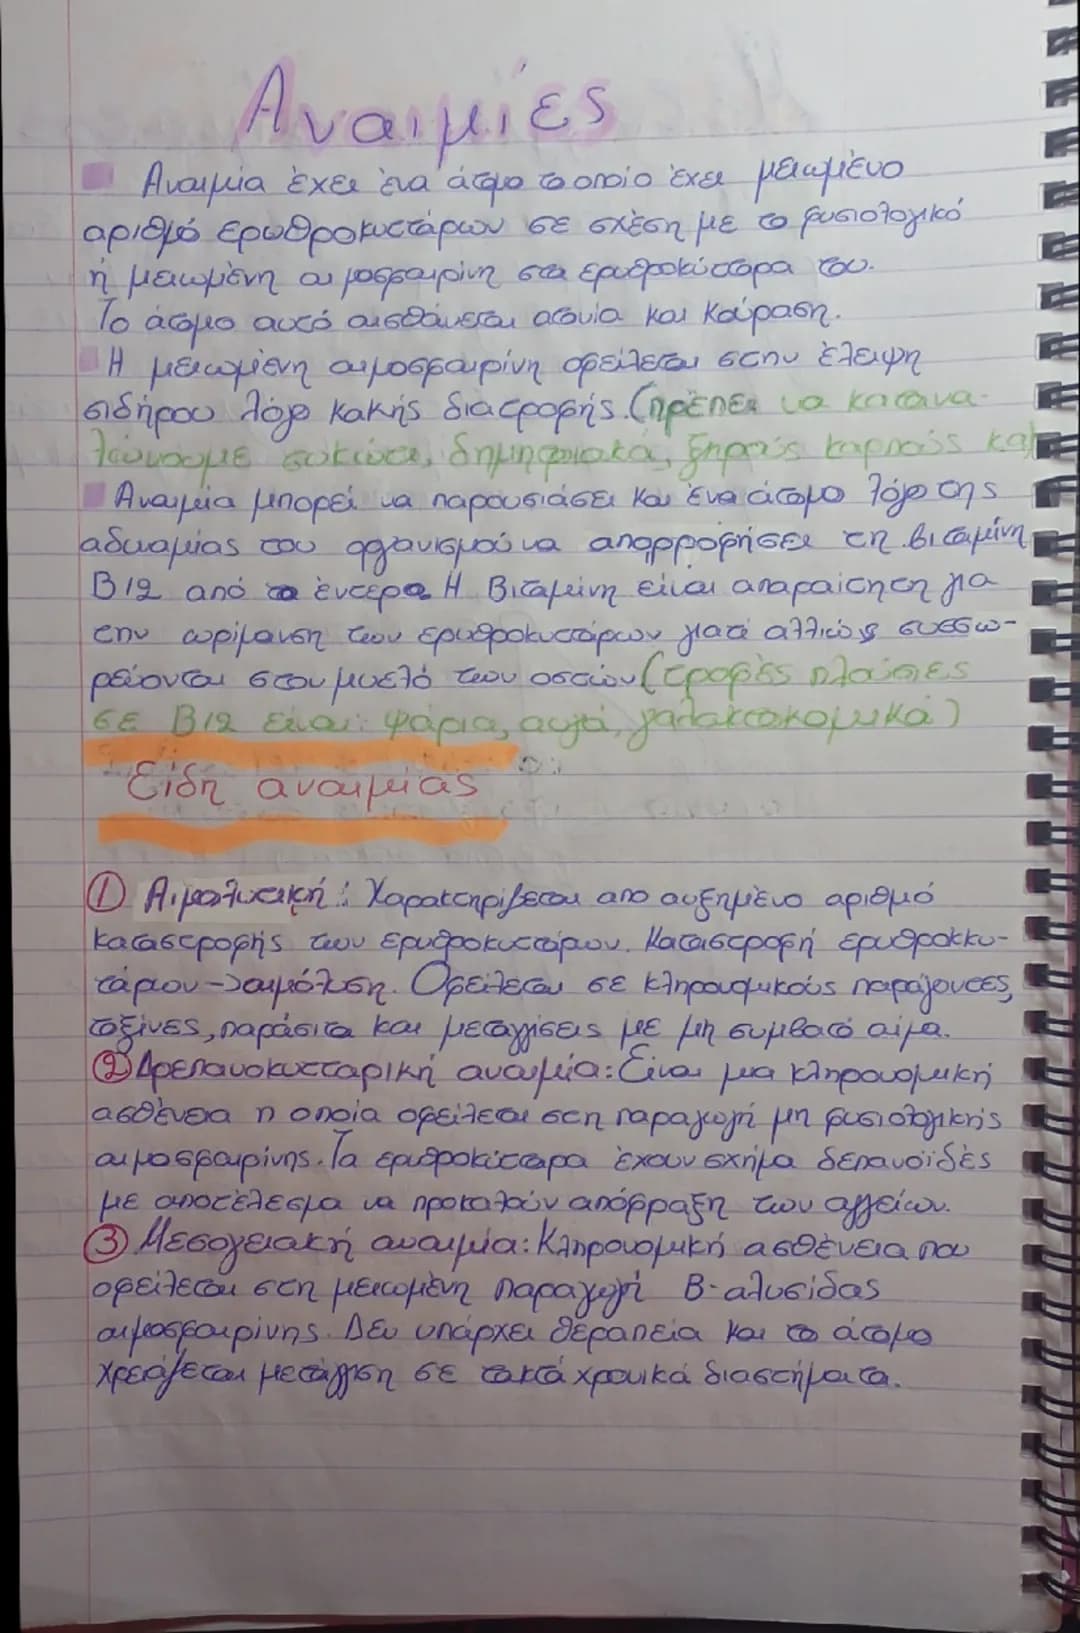 Αναιμίες
Αναιμία έχει ένα άτομο το οποίο έχει μειωμένο
αριθμό ερωθροκυττάρων σε σχέση με το φυσιολογικό
ή μειωμένη αιμοσφαιρίνη στα ερυθροκύτταρα του.
Το άτομο αυτό αισθάνεται ατονία και κούραση.
Η μειωμένη αιμοσφαιρίνη οφείλεται στην έλειψη
σιδήρου λόγο κακής διατροφής. (πρέπει να κατανα-
λώνουμε συκώτι, δημητριακά, ξηρούς καρπούς κα)
Αναιμία μπορεί να παρουσιάσει και ένα άτομο λόγο της
αδυναμίας του οργανισμού να απορροφήσει τη βιταμίνη
B12 από το έντερο. Η Βιταμίνη είναι απαραίτητη για
την ωρίμανση των ερυθροκυττάρων γιατί αλλιώς συσσω-
ρεύονται στον μυελό των οστών (τροφές πλούσιες
σε B12 είναι: ψάρια, αυγά, γαλακτοκομικά)
Είδη αναιμίας
① Αιμολυτική: Χαρακτηρίζεται απο αυξημένο αριθμό
καταστροφής των ερυθροκυττάρων. Καταστροφή ερυθροκκυ-
τάρων → αιμόλυση. Οφείλεται σε κληρονομικούς παράγοντες,
τοξίνες, παράσιτα και μεταγγίσεις με μη συμβατό αίμα.
② Δρεπανοκυτταρική αναιμία: Είναι μια κληρονομική
ασθένεια η οποία οφείλεται στη παραγωγή μη φυσιολογικής
αιμοσφαιρίνης. Τα ερυθροκύτταρα έχουν σχήμα δεπανοϊδές
με αποτέλεσμα να προκαλούν απόφραξη των αγγείων.
③ Μεσογειακή αναιμία: Κληρονομική ασθένεια που
οφείλεται στη μειωμένη παραγωγή Β-αλυσίδας
αιμοσφαιρίνης. Δεν υπάρχει θεραπεία και το άτομο
χρειάζεται μετάγγιση σε τακτά χρονικά διαστήματα.